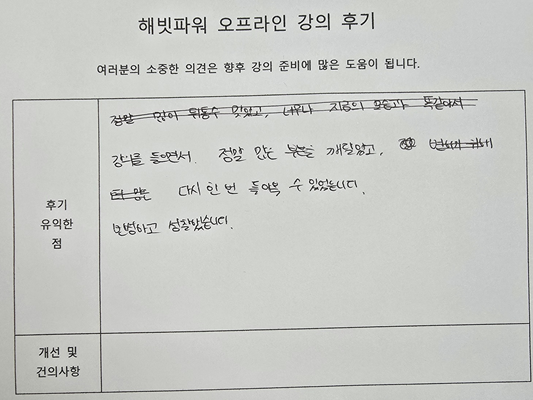 해빗파워 오프라인 강의 후기
여러분의 소중한 의견은 향후 강의 준비에 많은 도움이 됩니다.
후기
유익한
점
정말 많이 뒤통수 맞았고, 너무나 지금의 모습과 똑같아서
강의를 들으면서. 정말 많은 부분을 깨달았고,
다시 한 번 돌아올 수 있었습니다.
반성하고 성찰했습니다.
개선 및
건의사항